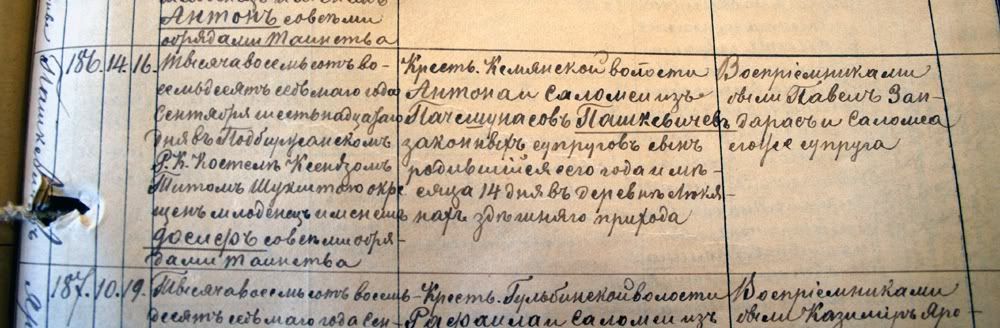 Антонъ со всѣми
обрядами Таинства
186. 14. 16. Тысяча восемьсотъ во-
семьдесятъ седьмаго года
Сентября шестнадцатаго
дня въ Подбирж­анскомъ
Р. К. Костелѣ Ксендзомъ
Титомъ Шукштого окре
щенъ младенецъ именемъ
со всѣми обря-
дами Таинства
Крест. Кемянской волости
Антона и Саломеи изъ
Пачешунасовъ Пашкевичевъ
законныхъ супруговъ сынъ
родившійся сего года и мѣ-
сяца 14 дня въ деревнѣ
нахъ здѣшняго прихода
Воспріемниками
были Павелъ Зан-
дарасъ и Саломеа
его же супруга
187. 10. 19. Тысяча восемьсотъ восемь-
десятъ седьмаго года Сен-
Крест. Гульбинской волости
Рафаила и Саломеи изъ
Воспріемниками
были Казимиръ Яро-